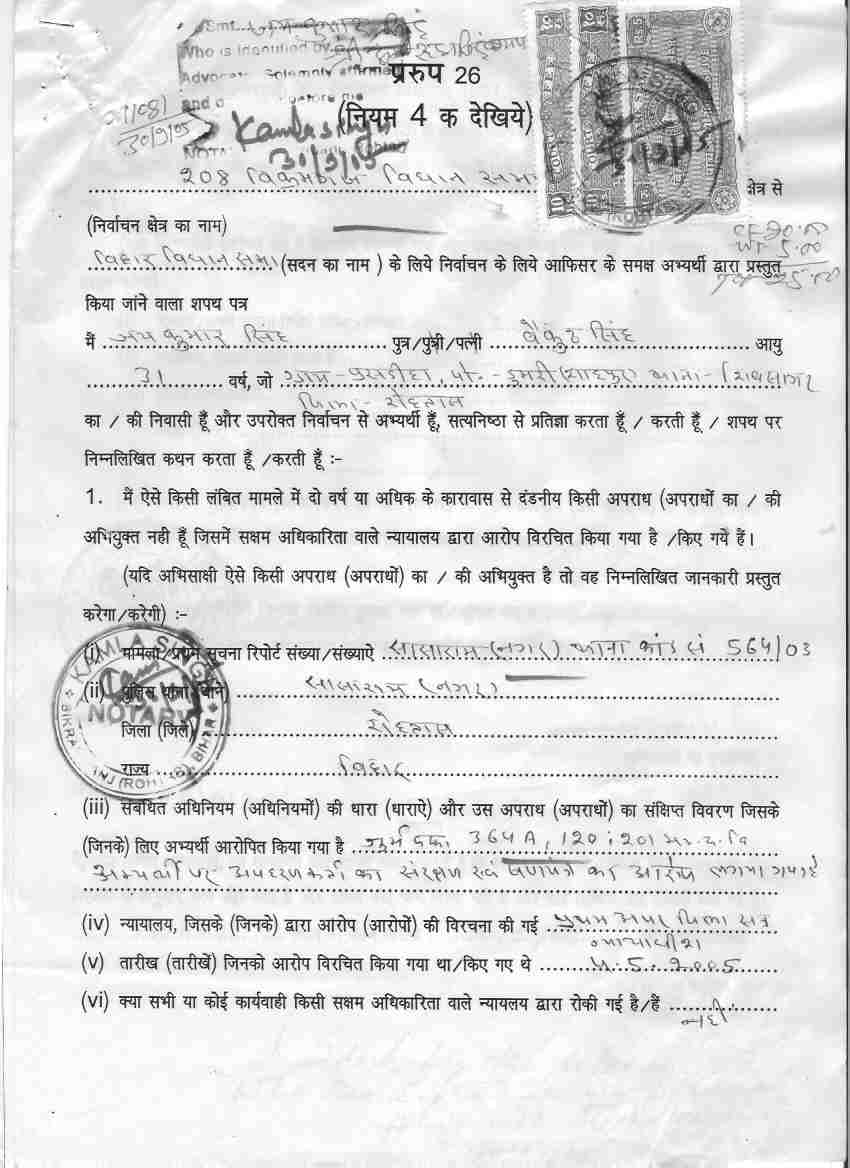 Smt.
Who is identified by
Advocate Solemnly affirmed
प्ररुप 26
(नियम 4 क देखिये)
30/9/05
Kamla Singh
30/9/05
208 विक्रमगंज विधान सभा क्षेत्र से
(निर्वाचन क्षेत्र का नाम)
बिहार विधान सभा (सदन का नाम ) के लिये निर्वाचन के लिये आफिसर के समक्ष अभ्यर्थी द्वारा प्रस्तुत
किया जांने वाला शपथ पत्र
मैं जय कुमार सिंह पुत्र/पुत्री/पत्नी बैकुंठ सिंह आयु
31 वर्ष, जो ग्राम- पो.- डुमरी थाना- शिवसागर
जिला- रोहतास
का / की निवासी हूँ और उपरोक्त निर्वाचन से अभ्यर्थी हूँ, सत्यनिष्ठा से प्रतिज्ञा करता हूँ / करती हूँ / शपथ पर
निम्नलिखित कथन करता हूँ /करती हूँ :-
1. मैं ऐसे किसी लंबित मामले में दो वर्ष या अधिक के कारावास से दंडनीय किसी अपराध (अपराधों का / की
अभियुक्त नही हूँ जिसमें सक्षम अधिकारिता वाले न्यायालय द्वारा आरोप विरचित किया गया है /किए गये हैं।
(यदि अभिसाक्षी ऐसे किसी अपराध (अपराधों) का / की अभियुक्त है तो वह निम्नलिखित जानकारी प्रस्तुत
करेगा/करेगी) :-
(i) मामला/प्रथम सूचना रिपोर्ट संख्या/संख्याऐ सासाराम (नगर) थाना कांड सं 564/03
(ii) पुलिस थाना (थाने) सासाराम (नगर)
जिला (जिले) रोहतास
राज्य बिहार
KAMLA SINGH
NOTARY
BIHAR
(iii) संबंधित अधिनियम (अधिनियमों) की धारा (धाराऐ) और उस अपराध (अपराधों) का संक्षिप्त विवरण जिसके
(जिनके) लिए अभ्यर्थी आरोपित किया गया है 364A, 120, 201 भा.द.वि
अभ्यर्थी पर अपहरणकर्ता का संरक्षण एवं का आरोप लगाया गया है
(iv) न्यायालय, जिसके (जिनके) द्वारा आरोप (आरोपों) की विरचना की गई प्रथम अपर जिला सत्र
न्यायाधीश
(v) तारीख (तारीखें) जिनको आरोप विरचित किया गया था/किए गए थे 5.2005
(vi) क्या सभी या कोई कार्यवाही किसी सक्षम अधिकारिता वाले न्यायलय द्वारा रोकी गई है/हैं नहीं